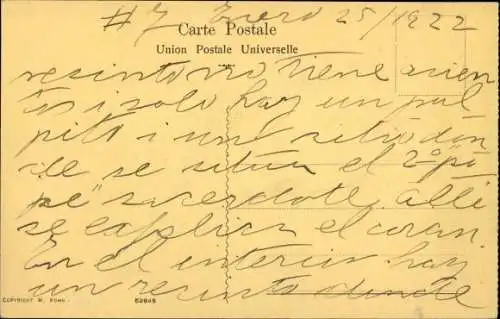 #7 Enero 25/1922
Carte Postale
Union Postale Universelle
recinto no tiene asien
tos i solo hay un púl
pito i un sitio don
de se situa el 2º "pi
pe" sacerdote, alli
se explica el coran.
En el interior hay
un recinto donde
COPYRIGHT M. ROHN. 62845